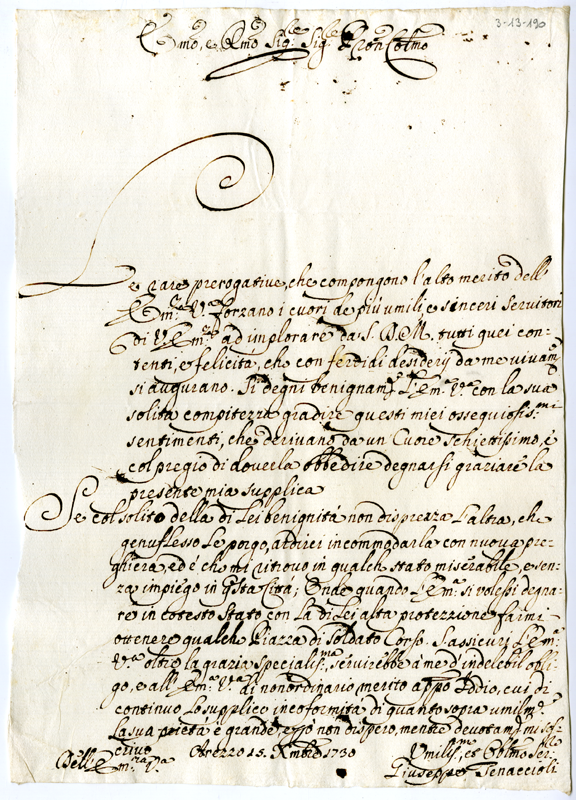 3-13-190
Em̃o, e Rm̃o Sig.re Sig.re e Pron Colmo
Le rare prerogative, che compongono l'alto merito dell'
Em.za V.ra forzano i cuori de più umili, e sinceri servitori
di V. Em.za ad implorare da S. D. M. tutti quei con-
tenti, e felicità, che con fervidi desiderij da me vivam.te
si augurano. Si degni benignam.te l'Em.za V.ra con la sua
solita compitezza gradire questi miei ossequiosiss.mi
sentimenti, che derivano da un Cuore Schiettissimo, e
col pregio di doverla obbedire degnarsi graziare la
presente mia supplica
Se col solito della di Lei benignità non disprezza l'altra, che
genuflesso Le porgo, ardirei incommodarla con nuova pre-
ghiera, ed è che mi ritrovo in qualch stato miserabile, e sen-
za impiego in q.sta Città; Onde quando l'Em.a si volessi degna-
re in cotesto Stato con la di Lei alta protezzione farmi
ottenere qualch Piazza di Soldato Corso. S'assicuri l'Em.a
V.ra oltre la grazia Specialiss.ma, servirebbe a me d'indelebil obli-
go, e all'Em.a V.a di non ordinario merito appo Iddio, cui di
continuo lo supplico in coformità di quanto sopra umilm.e
La sua pietà è grande, e p̃ò non dispero, mentre devotam.e mi so-
scrivo
Dell'Em.za V.ra
Arezzo 15. Xmbre 1730
Umiliss.mo, es Oblmo Ser.
Giuseppe Tenaccioli